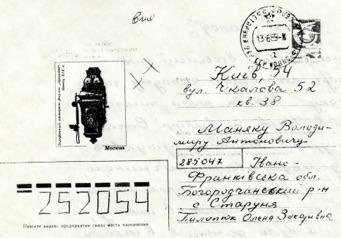 13-6-89
Київ, 54
вул. Чкалова 52
кв. 38
Маняку Володи-
миру Антоновичу
285047 Івано-
Франківська обл.
Богородчанський р-н
с Старуня
Пилипюк Олена Захарівна
Москва
252054
Пишите индекс предприятия связи места назначения